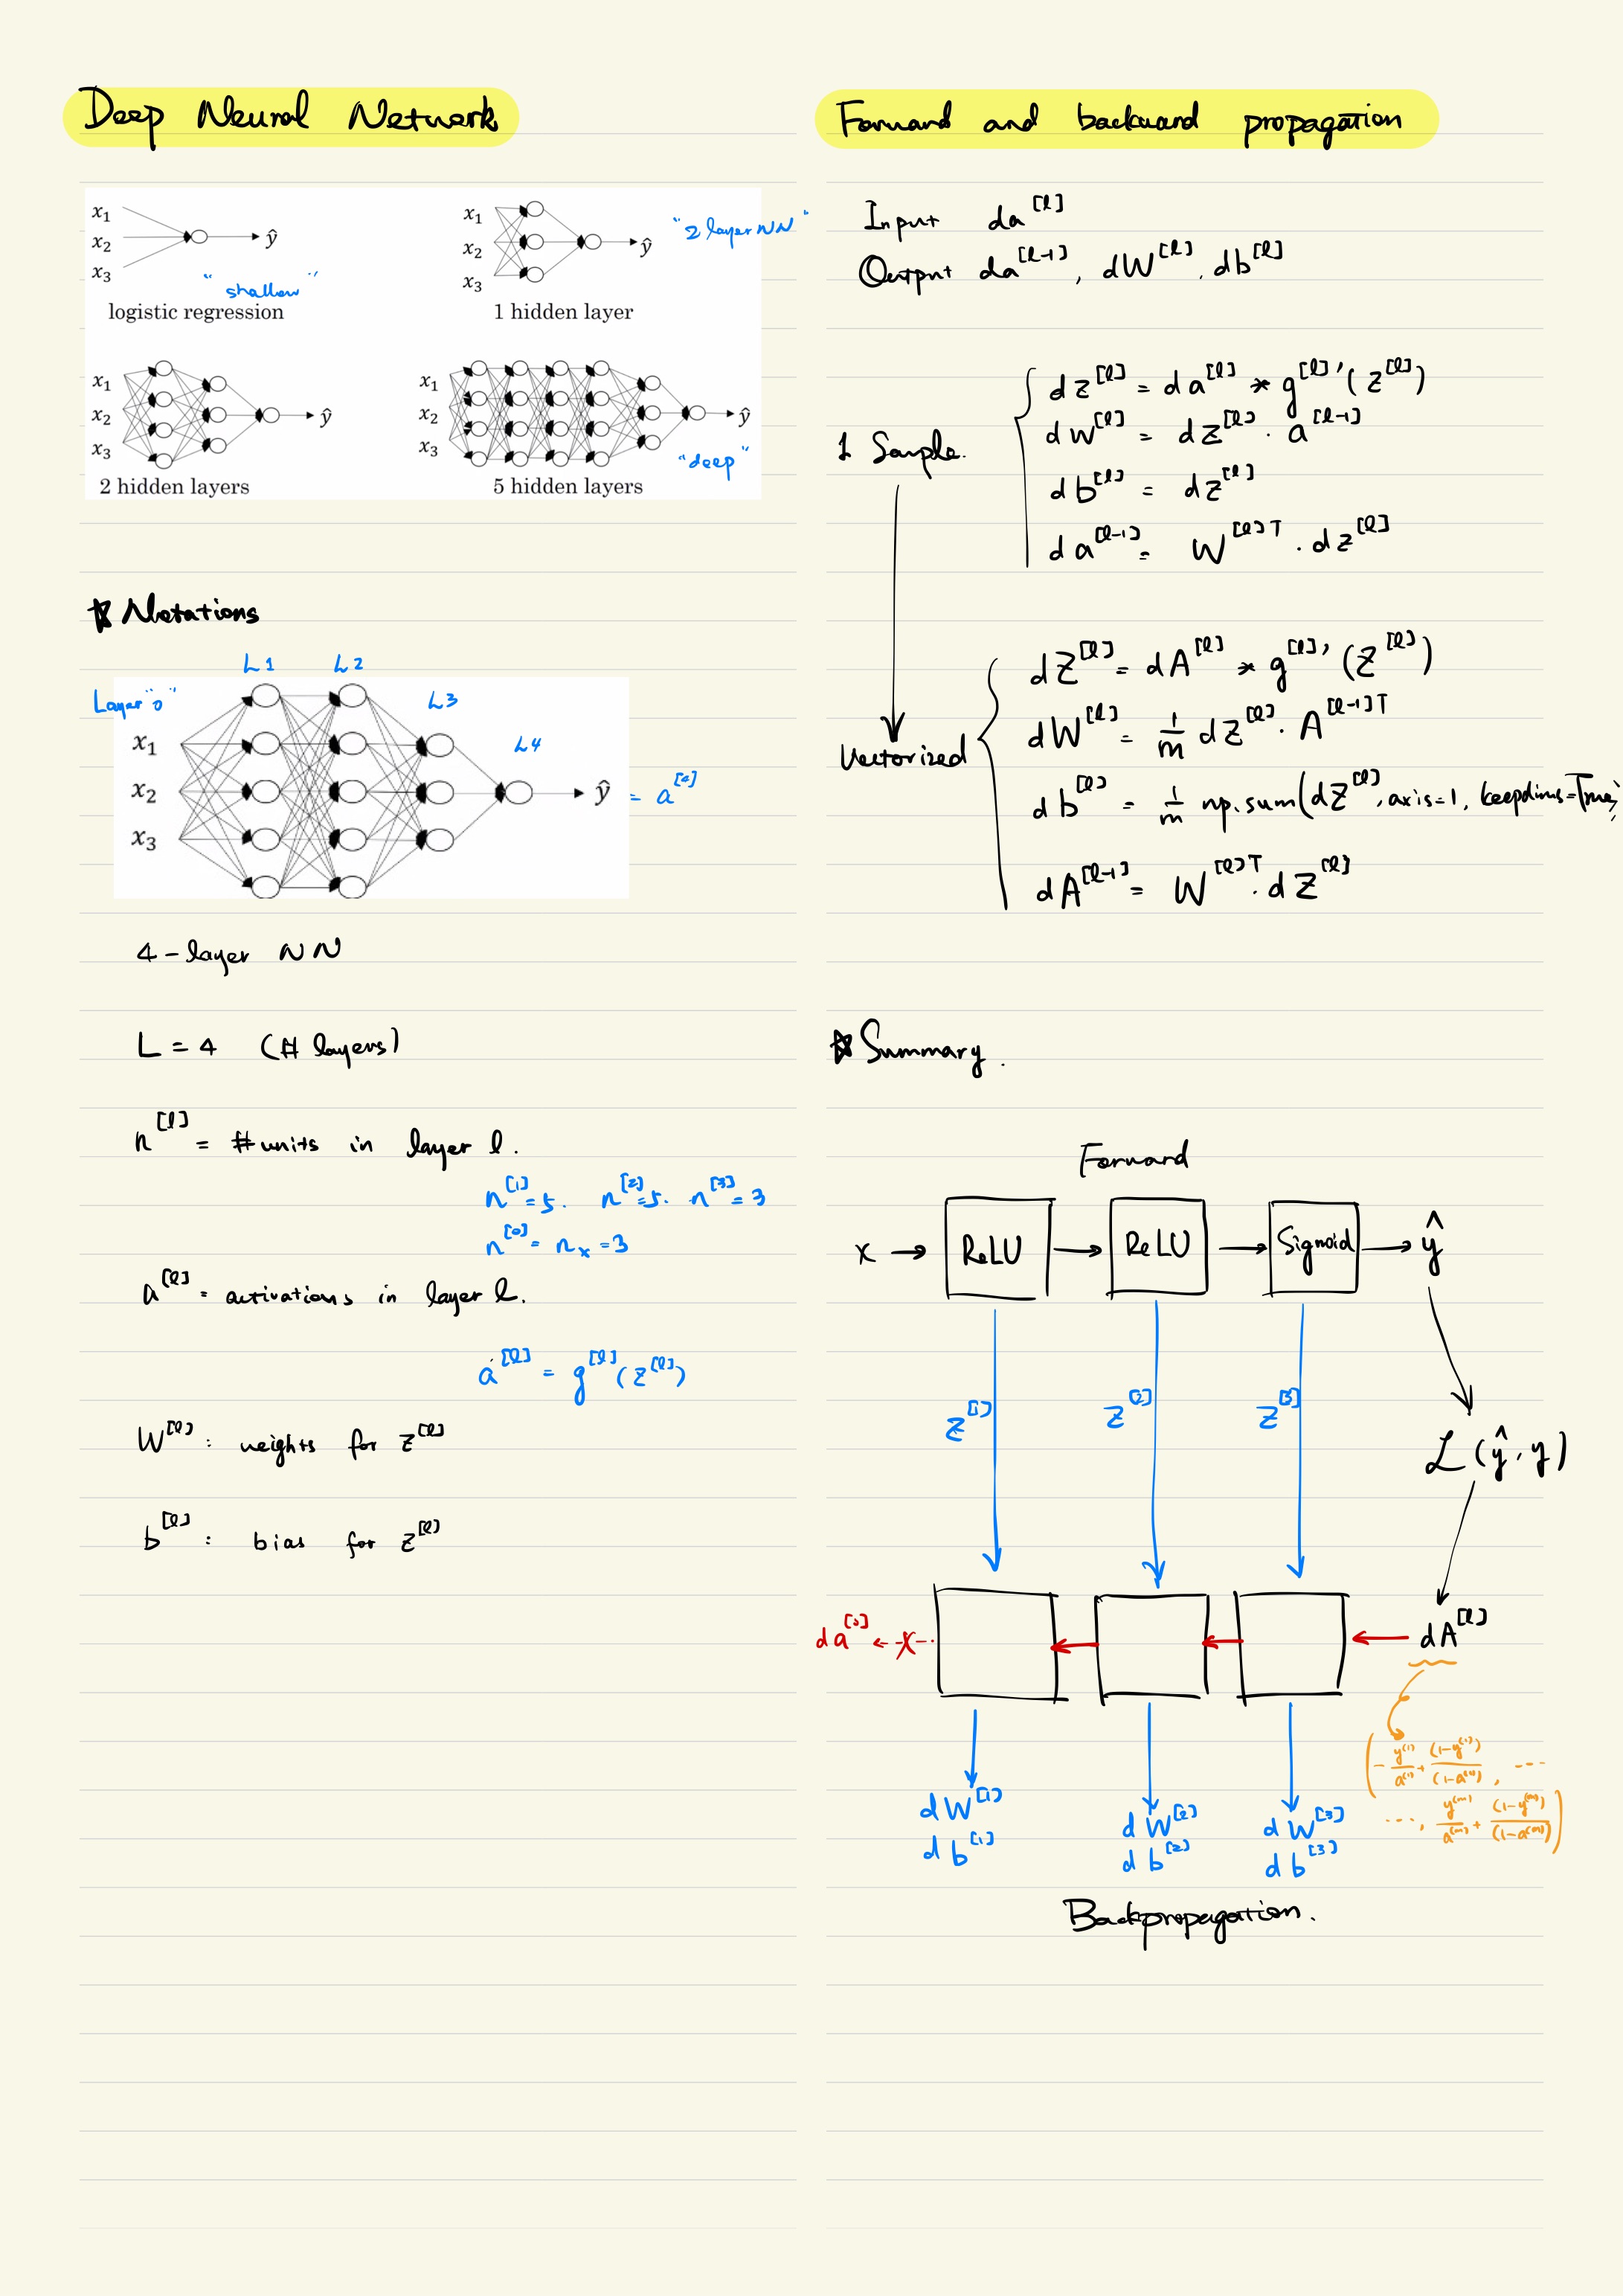 Deep Neural Network
x₁
x₂
x₃
ŷ
"shallow"
logistic regression
x₁
x₂
x₃
ŷ
"2 layer NN"
1 hidden layer
x₁
x₂
x₃
ŷ
2 hidden layers
x₁
x₂
x₃
ŷ
"deep"
5 hidden layers
☆ Notations
L1 L2
Layer "0"
L3
L4
x₁
x₂
x₃
ŷ = a^[4]
4-layer NN
L = 4 (# layers)
n^[l] = # units in layer l.
n^[1] = 5. n^[2] = 5. n^[3] = 3
n^[0] = n_x = 3
a^[l] = activations in layer l.
a^[l] = g^[l] (z^[l])
W^[l] : weights for z^[l]
b^[l] : bias for z^[l]
Forward and backward propagation
Input da^[l]
Output da^[l-1], dW^[l], db^[l]
1 Sample.
dz^[l] = da^[l] * g^[l]' (z^[l])
dW^[l] = dz^[l] · a^[l-1]
db^[l] = dz^[l]
da^[l-1] = W^[l]T · dz^[l]
Vectorized
dZ^[l] = dA^[l] * g^[l]' (Z^[l])
dW^[l] = 1/m dZ^[l] · A^[l-1]T
db^[l] = 1/m np.sum(dZ^[l], axis=1, keepdims=True)
dA^[l-1] = W^[l]T · dZ^[l]
☆ Summary.
Forward
x → ReLU → ReLU → Sigmoid → ŷ
z^[1] z^[2] z^[3]
L(ŷ, y)
da^[0] ← -x- dA^[l]
(- y^(1)/a^(1) + (1-y^(1))/(1-a^(1)), ----
---, y^(m)/a^(m) + (1-y^(m))/(1-a^(m)))
dW^[1] dW^[2] dW^[3]
db^[1] db^[2] db^[3]
Backpropagation.